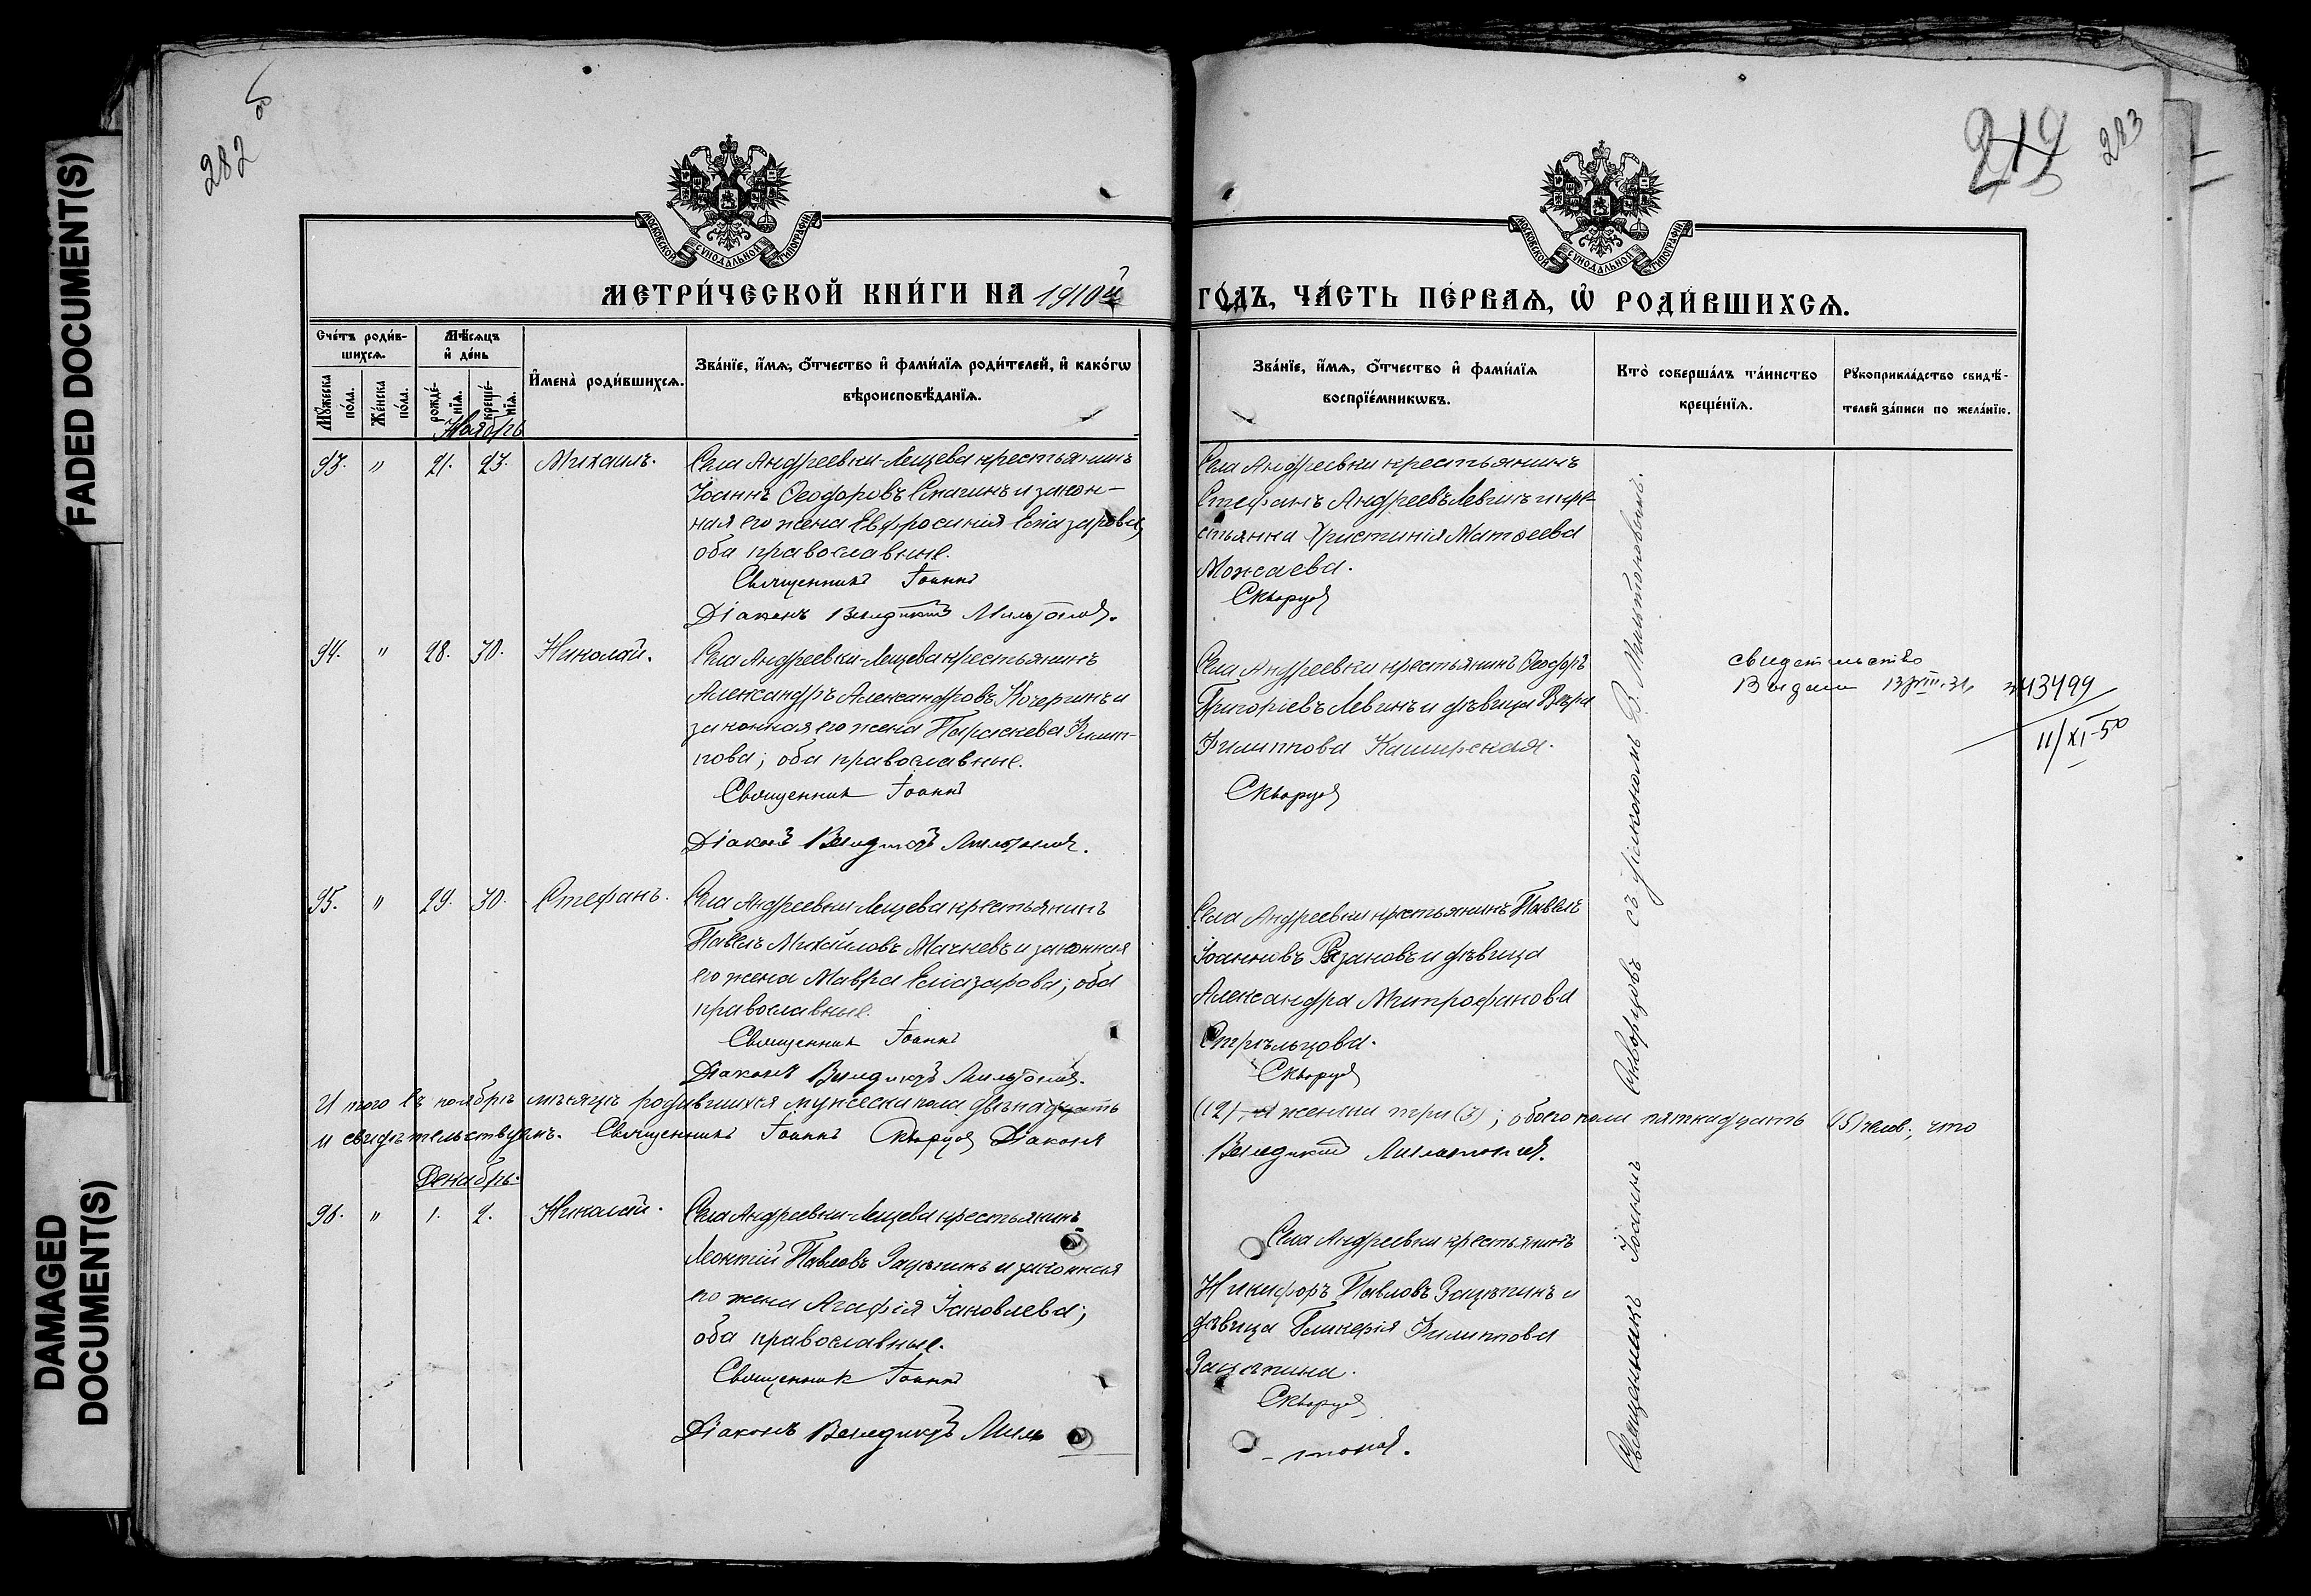 FADED DOCUMENT(S)
DAMAGED
DOCUMENT(S)
282 об
219
283
МОСКОВСКОЙ СѴНОДАЛЬНОЙ ТИПОГРАФІИ
МОСКОВСКОЙ СѴНОДАЛЬНОЙ ТИПОГРАФІИ
МЕТРИ́ЧЕСКОЙ КНИ́ГИ НА 1910й
ГО́ДЪ, ЧА́СТЬ ПЕ́РВАѦ, Ѡ҆ РОДИ́ВШИХСѦ.
Сче́тъ роди́в-
шихсѧ.
Мꙋ́жеска
по́ла.
Же́нска
по́ла.
Мѣ́сѧцъ
и҆ де́нь
рожде́-
нїѧ.
креще́-
нїѧ.
И҆мена̀ роди́вшихсѧ.
Зва́нїе, и҆́мѧ, ѻ҆́тчество и҆ фами́лїѧ роди́телей, и҆ како́гѡ
вѣроисповѣ́данїѧ.
Зва́нїе, и҆́мѧ, ѻ҆́тчество и҆ фами́лїѧ
воспрїе́мникѡвъ.
Кто̀ соверша́лъ та́инство
креще́нїѧ.
Рꙋкоприкла́дство свидѣ́-
телей за́писи по жела́нїю.
Ноябрь
93. " 21. 23. Михаилъ.
Села Андреевки-Лещева крестьянинъ
Іоаннъ Ѳеодоровъ и закон-
ная его жена Евфросинія Елеазарова,
оба православные.
Священникъ Іоаннъ
Діаконъ Венедиктъ Мильтоновъ.
Села Андреевки крестьянинъ
Стефанъ Андреевъ Левинъ и кре-
стьянка Христинія Матѳеева
Можаева.
Скворцовъ
94. " 28. 30. Николай.
Села Андреевки-Лещева крестьянинъ
Александръ Александровъ Кочергинъ и
законная его жена Параскева Филип-
пова; оба православные.
Священникъ Іоаннъ
Діаконъ Венедиктъ Мильтоновъ.
Села Андреевки крестьянинъ Ѳеодоръ
Григоріевъ Левинъ и дѣвица Вѣра
Филиппова Каширская.
Скворцовъ
свидетельство
Выдано 13/VIII.31.
43499
11/XI-50
95. " 29. 30. Стефанъ.
Села Андреевки-Лещева крестьянинъ
Павелъ Михайловъ Мачневъ и законная
его жена Мавра Елеазарова; оба
православные.
Священникъ Іоаннъ
Діаконъ Венедиктъ Мильтоновъ.
Села Андреевки крестьянинъ Павелъ
Іоанновъ Рязановъ и дѣвица
Александра Митрофанова
Стрѣльцова.
Скворцовъ
Итого въ ноябрѣ мѣсяцѣ родившихся мужеска пола двѣнадцать
(12), женска три (3); обоего пола пятнадцать (15) челов., что
и свидѣтельствуемъ. Священникъ Іоаннъ Скворцовъ Діаконъ
Венедиктъ Мильтоновъ.
Декабрь.
96. " 1. 2. Николай.
Села Андреевки-Лещева крестьянинъ
Леонтій Павловъ Зацепинъ и законная
его жена Агафія Іаковлева;
оба православные.
Священникъ Іоаннъ
Діаконъ Венедиктъ Миль
Села Андреевки крестьянинъ
Никифоръ Павловъ Зацепинъ и
дѣвица Гликерія Филиппова
Зацепина.
Скворцовъ
-тоновъ.
Священникъ Іоаннъ Скворцовъ съ діакономъ В. Мильтоновымъ.